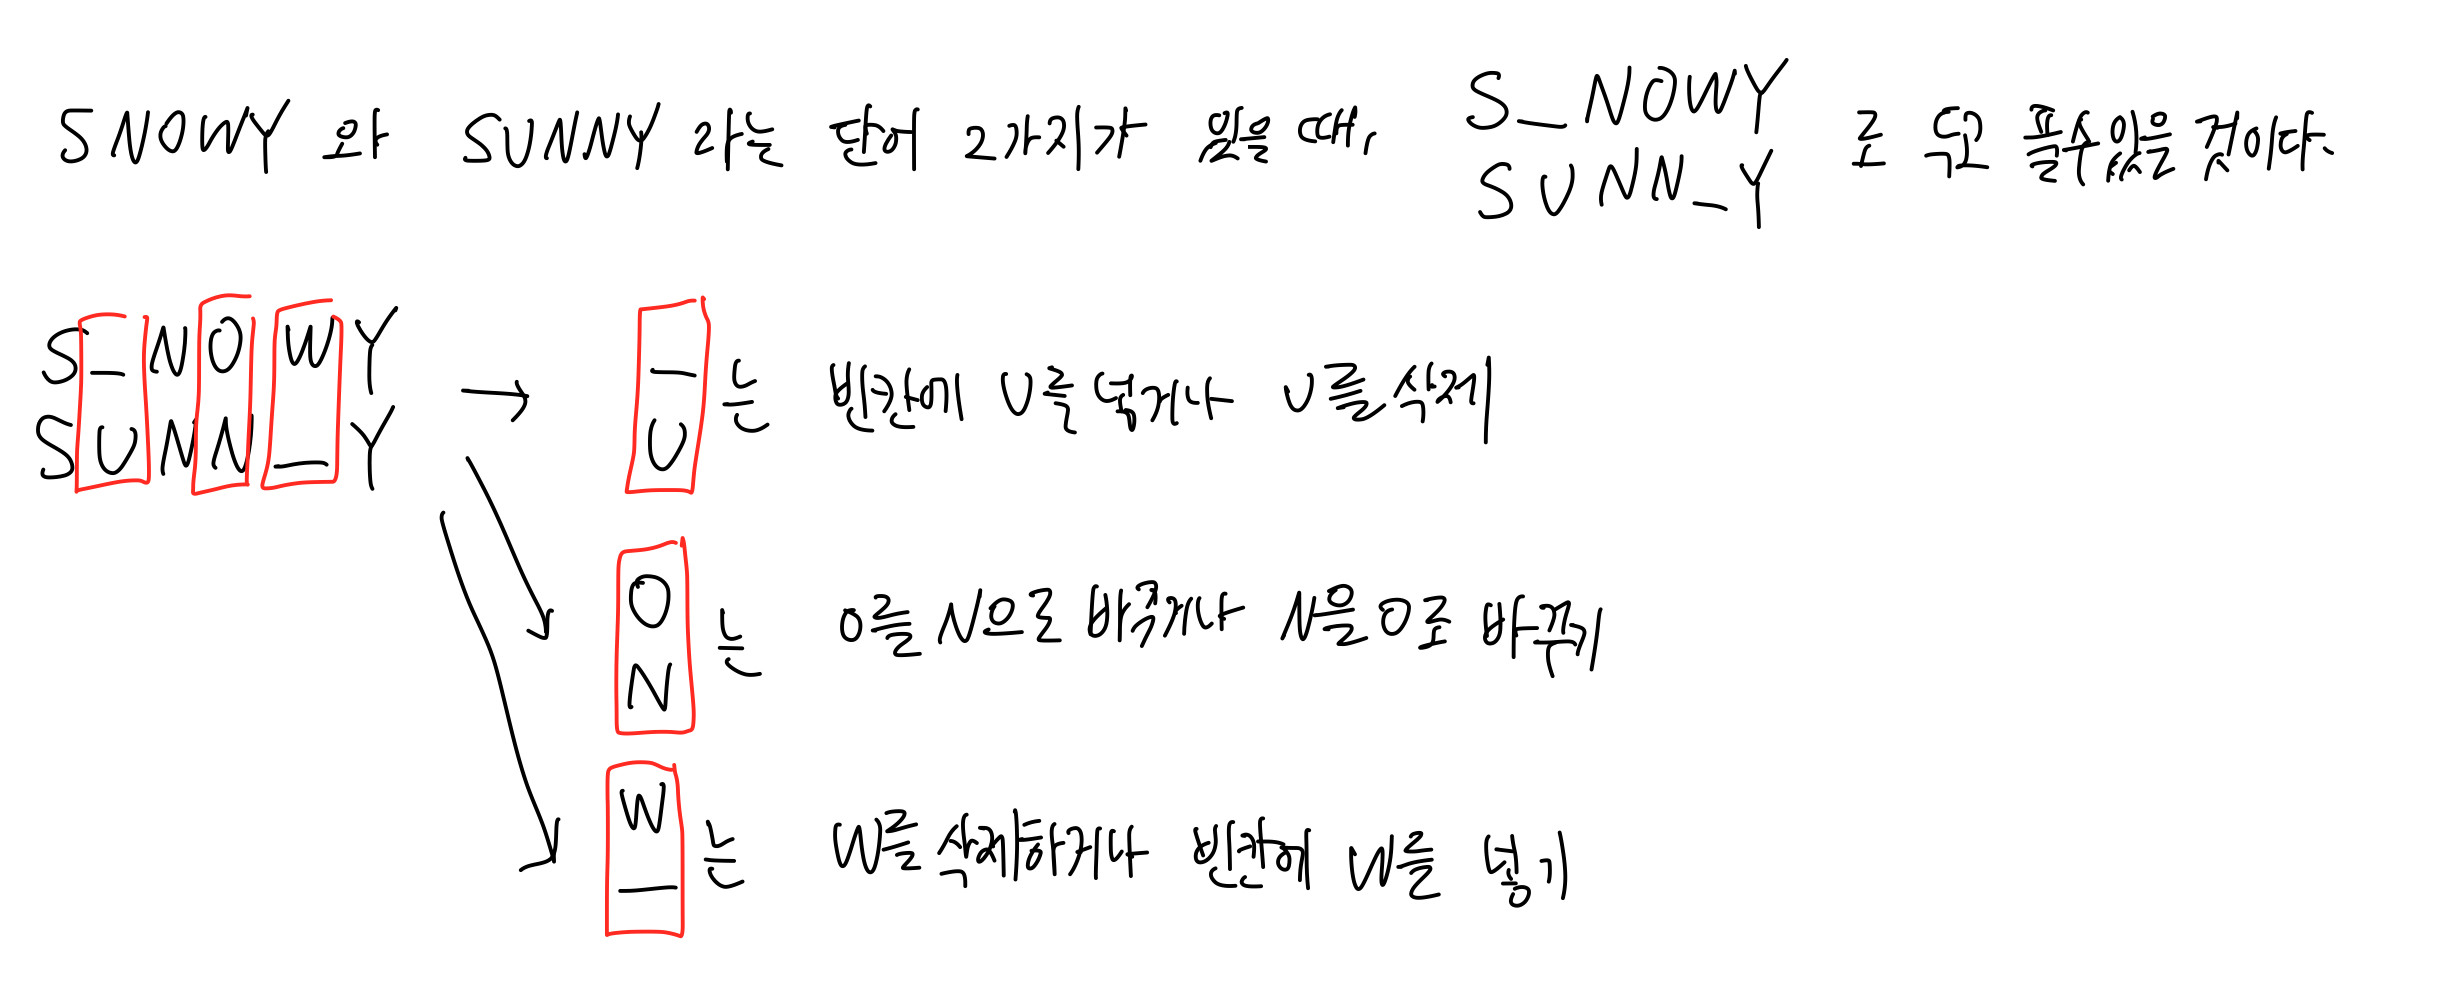 SNOWY 와 SUNNY 라는 단어 2가지가 있을 때, S_NOWY 로
SUNN_Y
S_NOWY
SUNN_Y
→
_
U
는 빈칸에 U를 넣거나 U를 삭제
O
N
는 O를 N으로 바꾸거나 N을 O로 바꾸기
W
_
는 W를 삭제하거나 빈칸에 W를 넣기